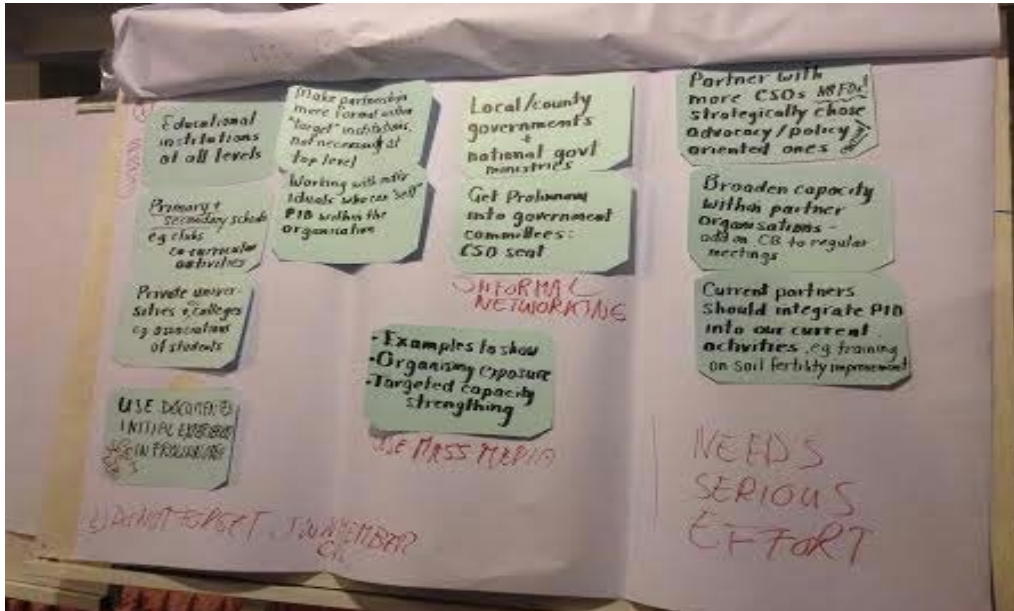 Educational
institutions
at all levels
Primary +
secondary schools
eg clubs
co-curricular
activities
Private univer-
sities + colleges
eg associations
of students
USE DOCUMENTED
INITIAL EXPERIENCES
IN
Make partnership
more formal within
"target" institutions,
not necessarily at
top level
Working with indiv
iduals who can "sell"
PID within the
organisation
Local/county
governments
+
national govt
ministries
Get Prolinnova
into government
committees:
CSO seat
INFORMAL
NETWORKING
- Examples to show
- Organising exposure
- Targeted capacity
strengthing
USE MASS MEDIA
Partner with
more CSOs
strategically chose
advocacy/policy
oriented ones
Broaden capacity
within partner
organisations -
add on CB to regular
meetings
Current partners
should integrate PID
into our current
activities, eg training
on soil fertility improvement
NEEDS
SERIOUS
EFFORT
DO NOT FORGET